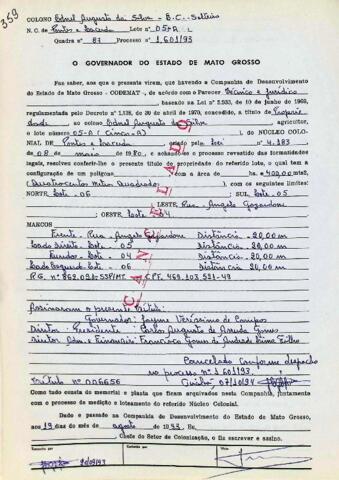 359
COLONO Ednel Augusto da Silva - B.C. Solteiro
N.C. de Pontes e Lacerda Lote nº 05-A
Quadra nº 87 Processo nº 1.601/93
O GOVERNADOR DO ESTADO DE MATO GROSSO
Faz saber, aos que a presente virem, que havendo a Companhia de Desenvolvimento
do Estado de Mato Grosso - CODEMAT -, de acordo com o Parecer Técnico e Jurídico
baseado na Lei nº 2.933, de 10 de junho de 1969,
regulamentado pelo Decreto nº 1.138, de 30 de abril de 1970, concedido, a título de
ao colono Ednel Augusto da Silva agricultor,
o lote número 05-A (Cinco-A) do NÚCLEO COLO-
NIAL DE Pontes e Lacerda criado pela Lei nº 4.183
de 08 de maio de 1980, e achando-se o processo revestido das formalidades
legais, resolveu conferir-lhe o presente título de propriedade do referido lote, o qual tem a
configuração de um polígono com a área de ha 400,00 m²
(Quatrocentos Metros Quadrados), com os seguintes limites:
NORTE Lote - 06 SUL Lote - 05
LESTE, Rua - Angelo
OESTE, Lote - 04
MARCOS
Frente - Rua - Angelo Distância - 20,00 m
Lado Direito - Lote - 05 Distância - 20,00 m
Fundos - Lote - 04 Distância - 20,00 m
Lado Esquerdo - Lote - 06 Distância - 20,00 m
CANCELADO
R.G. nº SSP/MT. CPF. 469.103.531-49
Assinaram o presente título:
Governador: Jayme Veríssimo de Campos
Diretor - Presidente: Carlos Augusto de Arruda Gomes
Diretor Adm. e Financeiro: Francisco Gomes de Andrade Lima Filho
Cancelado conforme despacho
no processo nº 1.601/93.
Título nº 006656 Cuiabá 07/10/94
Como tudo consta do memorial e planta que ficam arquivados nesta Companhia, juntamente
com o processo de medição e loteamento do referido Núcleo Colonial.
Dado e passado na Companhia de Desenvolvimento do Estado de Mato Grosso,
aos 19 dias do mês de agosto de 1993. Eu,
Chefe do Setor de Colonização, o fiz escrever e assino.